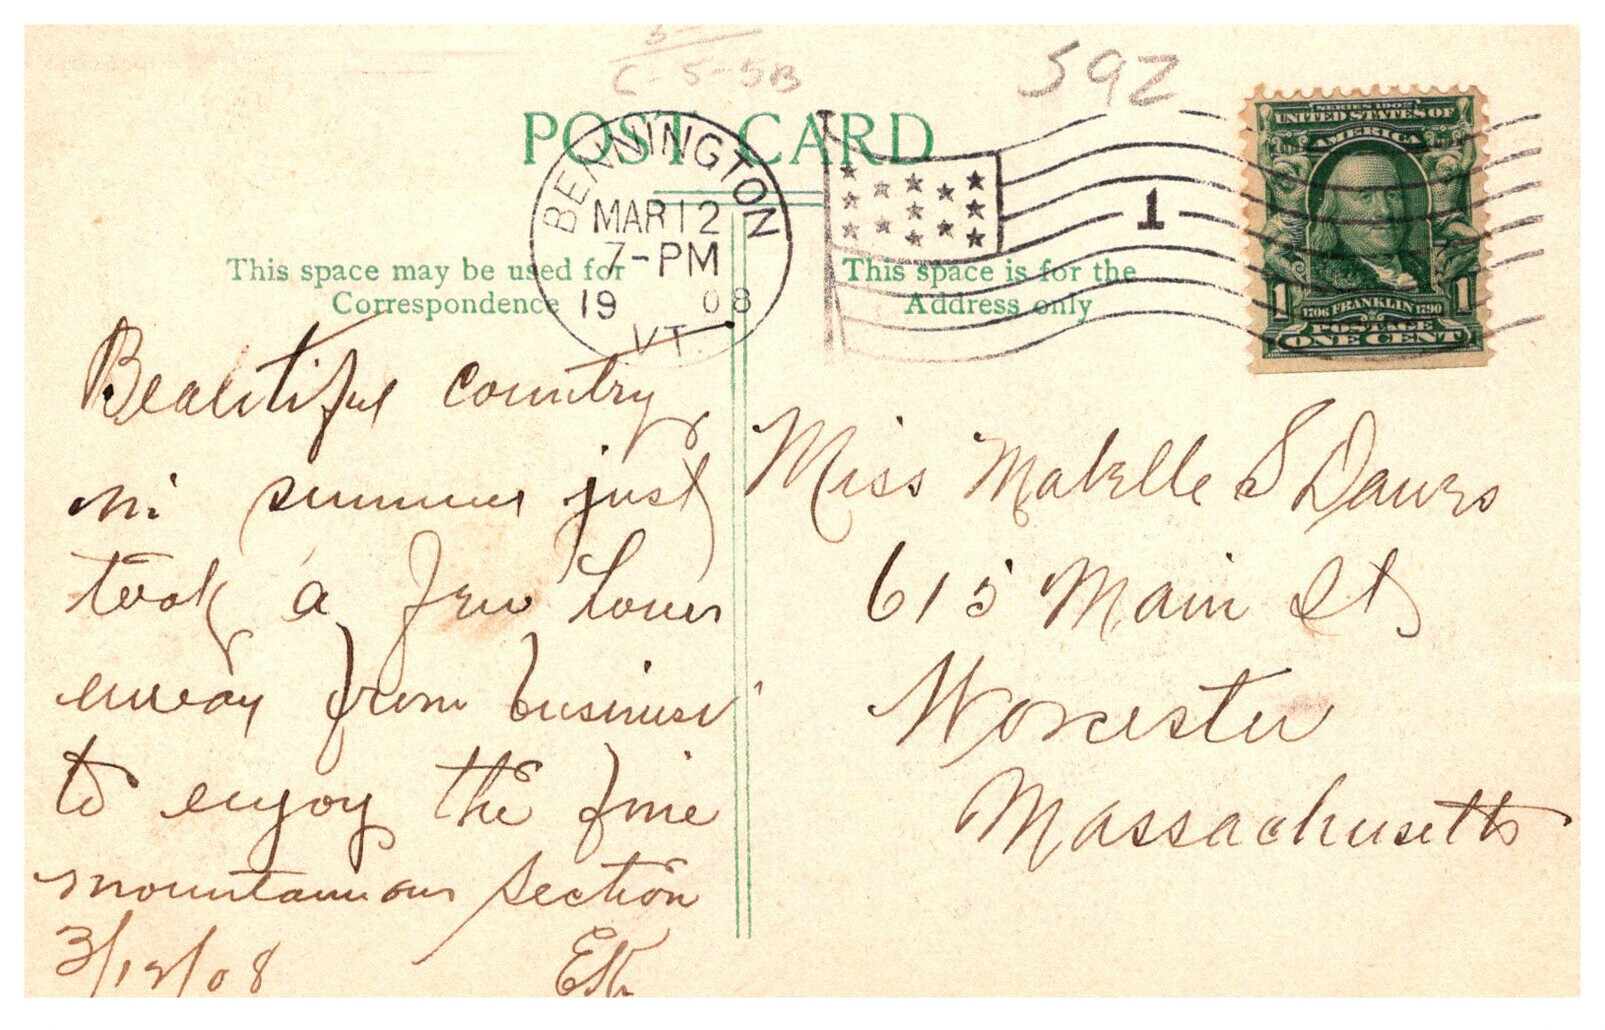 C-5-5B
592
POST CARD
BENNINGTON
MAR 12
7-PM
19 08
VT.
1
SERIES 1902
UNITED STATES OF
AMERICA
1 1706 FRANKLIN 1790 1
POSTAGE
ONE CENT
This space may be used for
Correspondence
This space is for the
Address only
Beautiful country
in summer just
took a few hours
away from business
to enjoy the fine
mountainous section
3/12/08
Miss Mabelle S Dawes
615 Main St
Worcester
Massachusetts